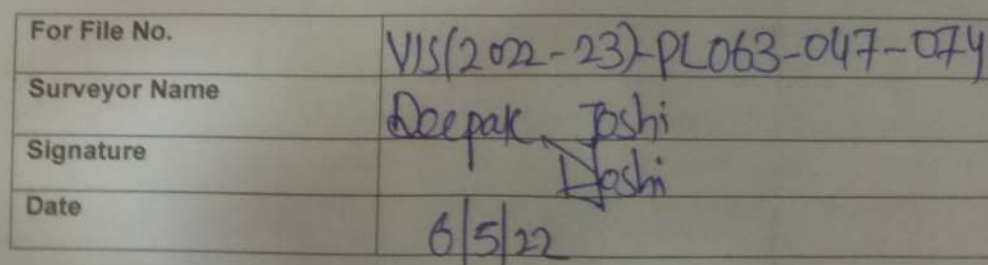 For File No. VIS(2022-23)-PL063-047-074
Surveyor Name Deepak Joshi
Signature DJoshi
Date 6/5/22